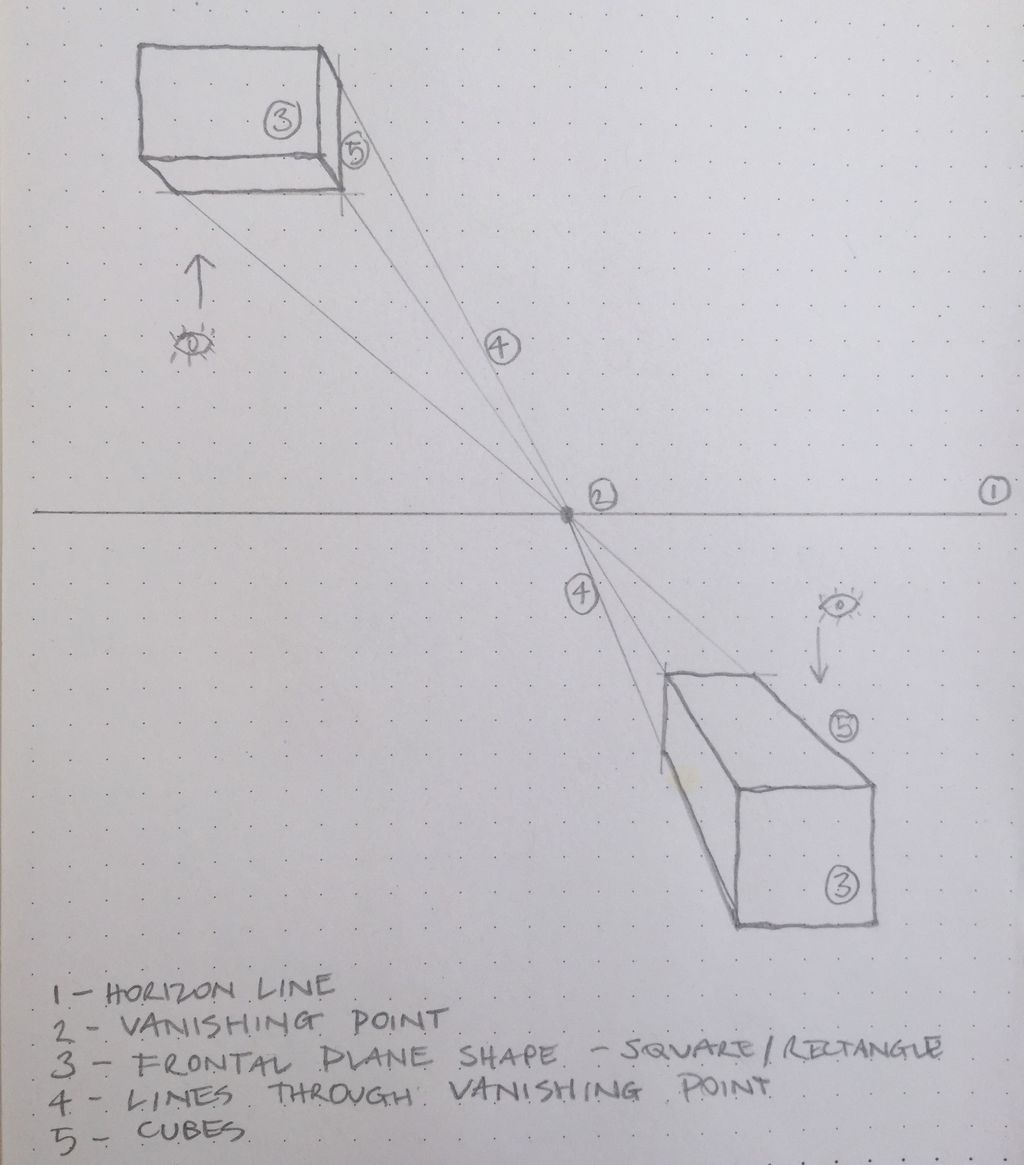 3
5
4
2
1
4
5
3
1 - HORIZON LINE
2 - VANISHING POINT
3 - FRONTAL PLANE SHAPE - SQUARE/RECTANGLE
4 - LINES THROUGH VANISHING POINT
5 - CUBES